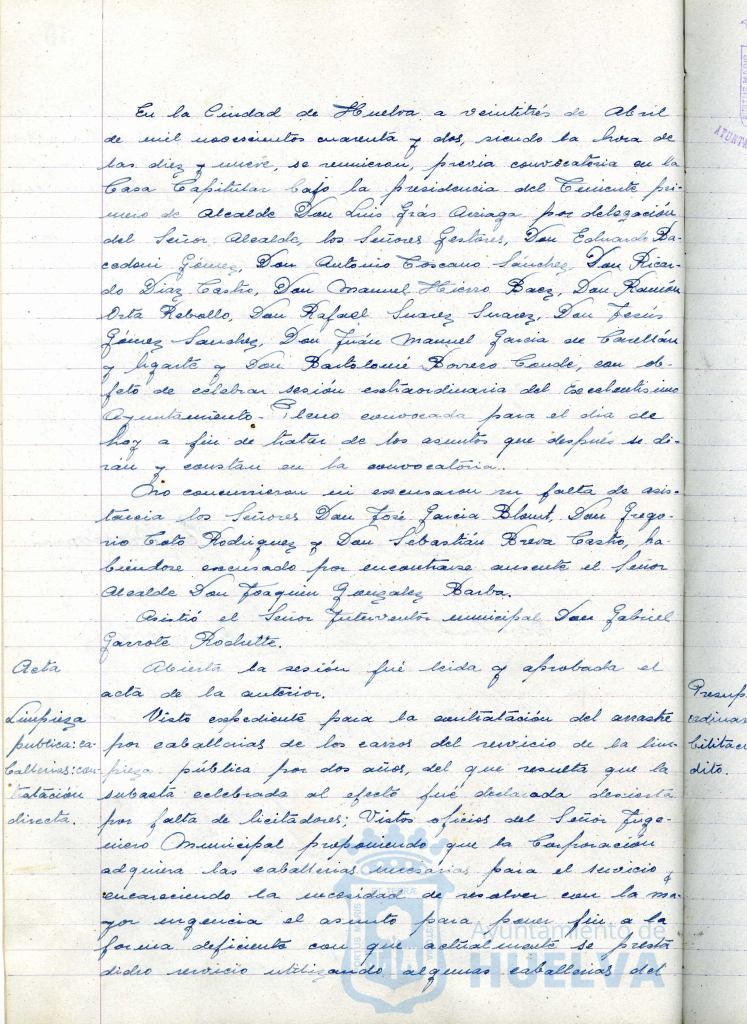 En la Ciudad de Huelva a veintitrés de Abril
de mil novecientos cuarenta y dos, siendo la hora de
las diez y nueve, se reunieron, previa convocatoria en la
Casa Capitular bajo la presidencia del Teniente pri-
mero de Alcalde Don Luis Grás Arriaga por delegación
del Señor Alcalde, los Señores Gestores, Don Eduardo Ba-
cedoni Gómez, Don Antonio Toscano Sánchez, Don Ricar-
do Díaz Castro, Don Manuel Hierro Baez, Don Ramón
Orta Rebollo, Don Rafael Suarez Suarez, Don Jesús
Gómez Sanchez, Don Juán Manuel Garcia de
y Ugarte y Don Bartolomé Borrero Conde, con ob-
jeto de celebrar sesión extraordinaria del Excelentísimo
Ayuntamiento-Pleno convocada para el día de
hoy a fin de tratar de los asuntos que después se di-
rán y constan en la convocatoria.
No concurrieron ni excusaron su falta de asis-
tencia los Señores Don José Garcia Don Grego-
rio Toto Rodriguez y Don Sebastián Breva Castro, ha-
biéndose excusado por encontrarse ausente el Señor
Alcalde Don Joaquin Gonzalez Barba.
Asistió el Señor Interventor municipal Don Gabriel
Garrote Rochette.
Acta
Abierta la sesión fué leida y aprobada el
acta de la anterior.
Limpieza
publica: ca-
ballerias: con-
tratación
directa.
Visto expediente para la contratación del arrastre
por caballerias de los carros del servicio de la lim-
pieza pública por dos años, del que resulta que la
subasta celebrada al efecto fué declarada desierta
por falta de licitadores; Vistos oficios del Señor Inge-
niero Municipal proponiendo que la Corporación
adquiera las caballerias necesarias para el servicio y
encareciendo la necesidad de resolver con la ma-
yor urgencia el asunto para poner fin a la
forma deficiente con que actualmente se presta
dicho servicio utilizando algunas caballerias del
Ayuntamiento de
HUELVA
Presup
ordinar
bilitaci
dito.